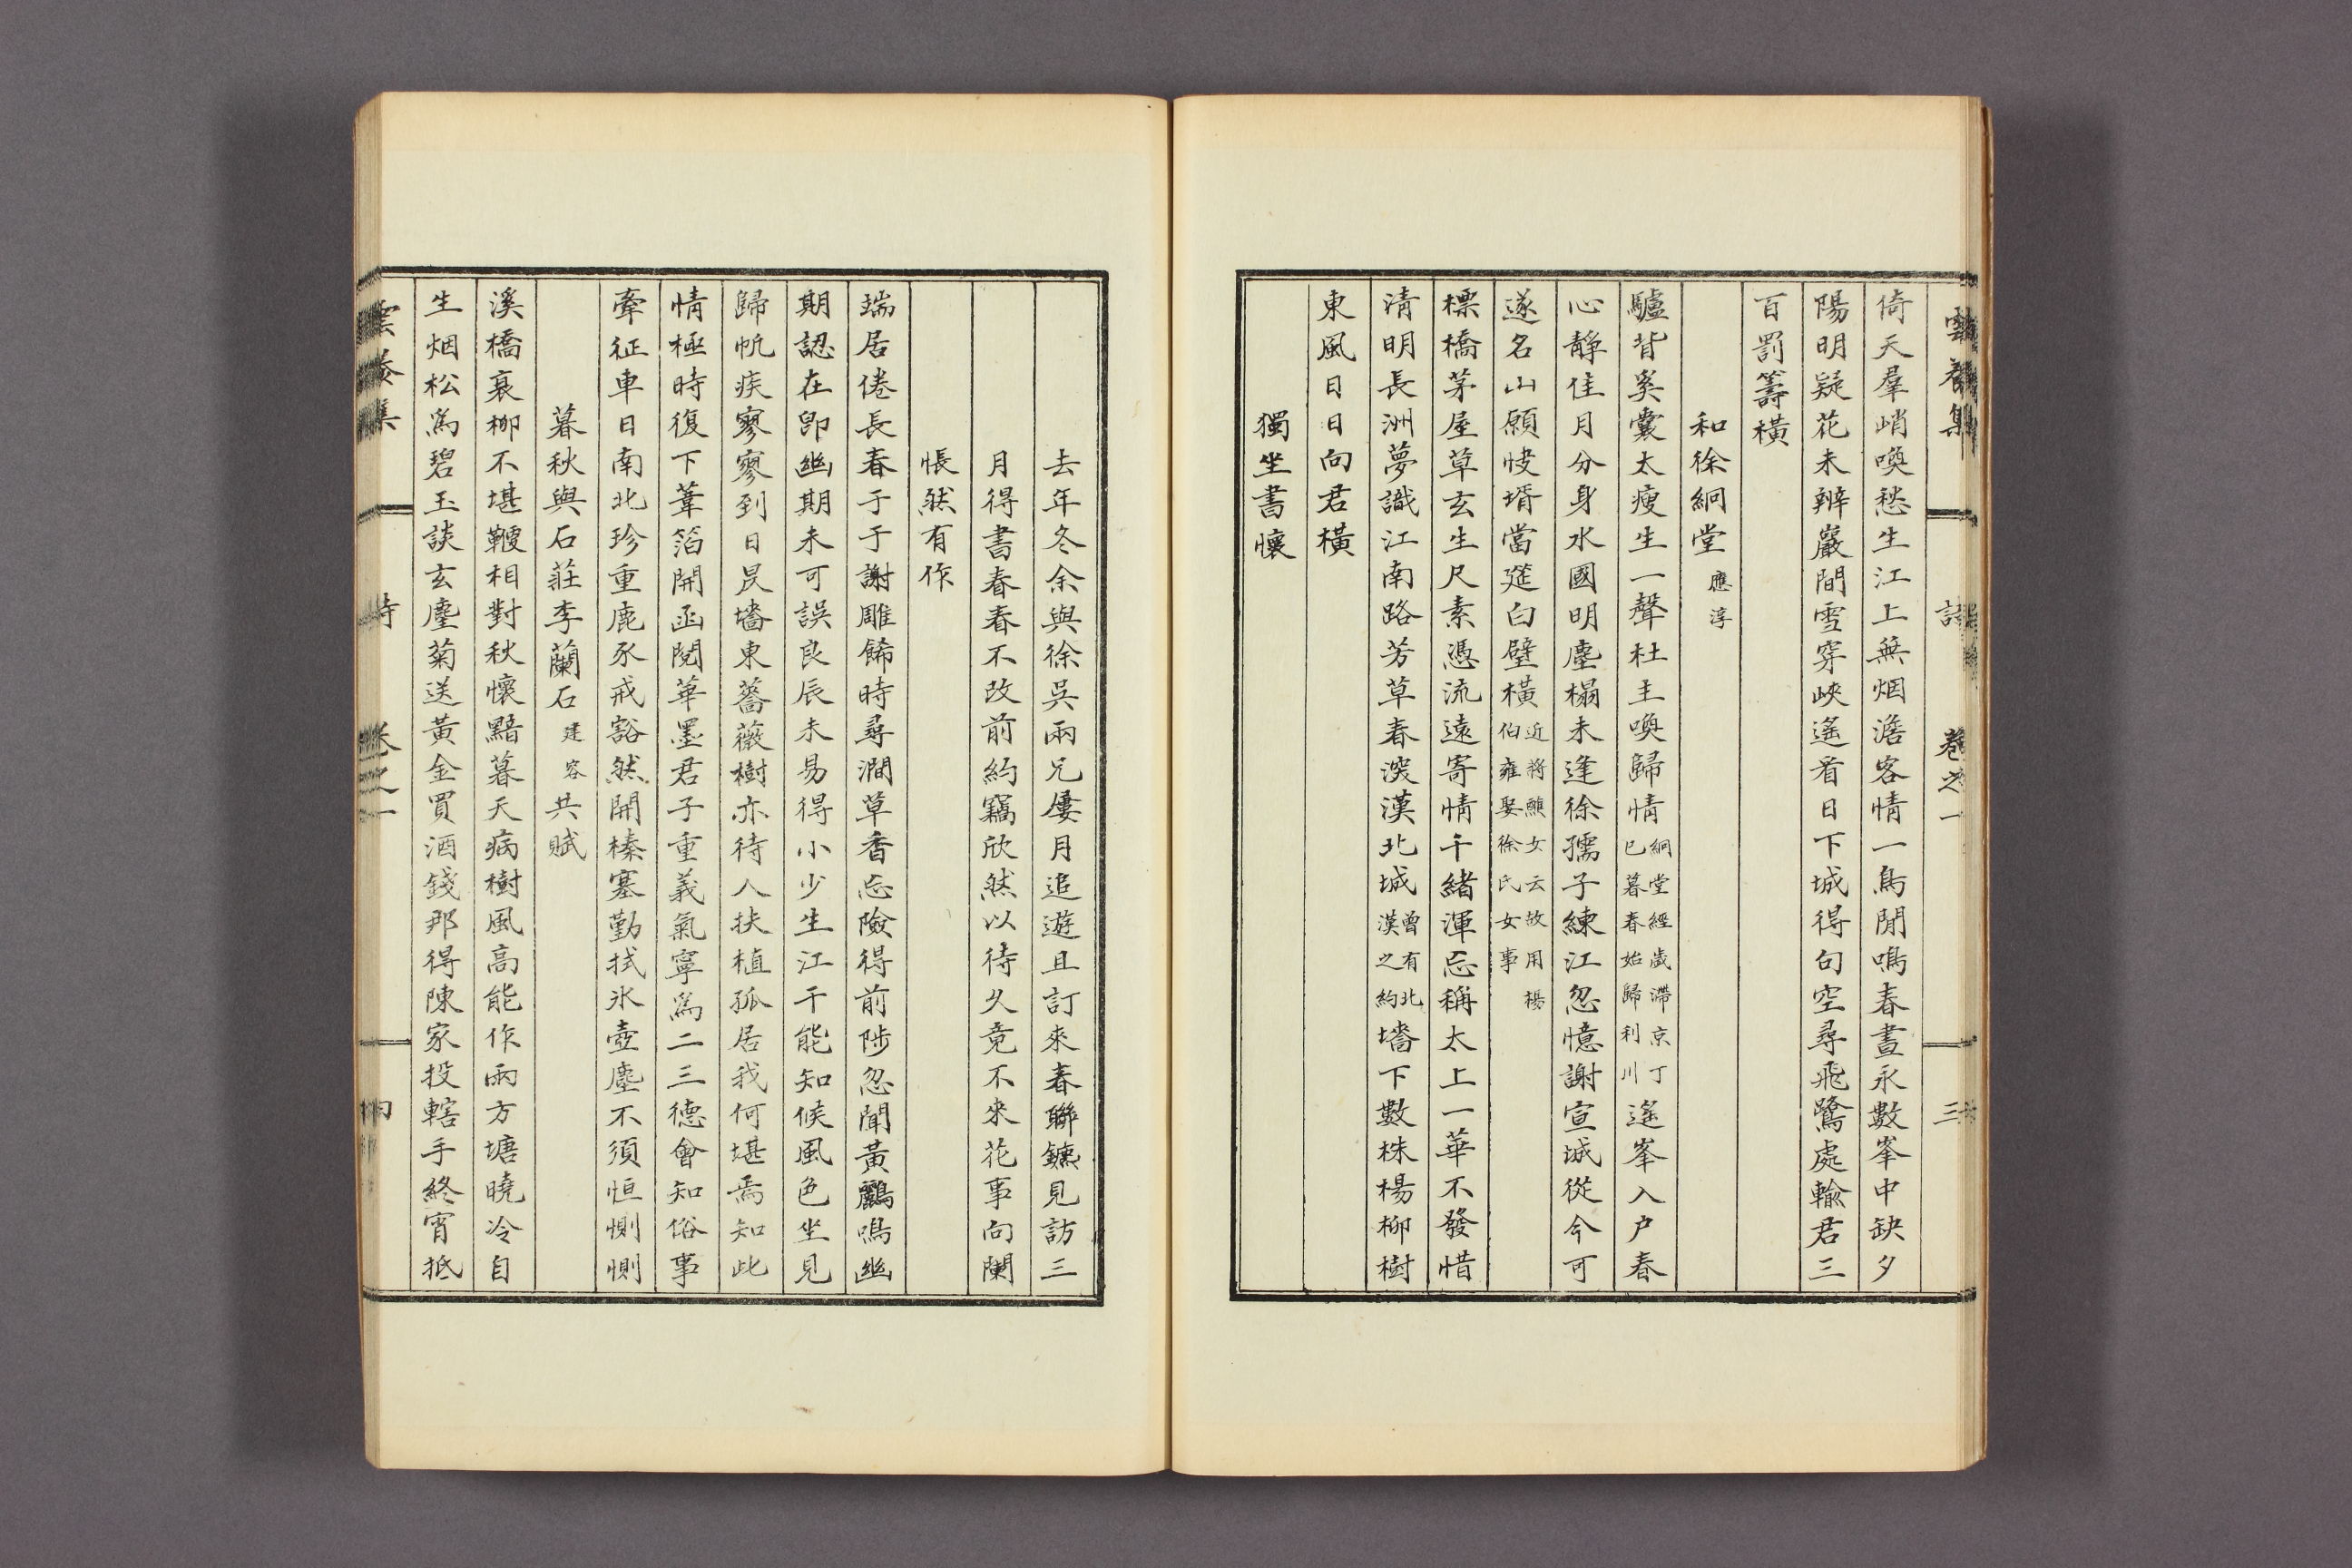 雲養集 詩 卷之一 三
倚天羣峭喚愁生江上無烟澹客情一鳥閒鳴春晝永數峯中缺夕
陽明疑花未辨巖間雪穿峽遙看日下城得句空尋飛鷺處輸君三
百罰籌橫
和徐絅堂 應淳
驢背奚囊太瘦生一聲杜主喚歸情 絅堂經歲滯京丁巳暮春始歸利川 遙峯入戶春
心靜佳月分身水國明塵榻未逢徐孺子練江忽憶謝宣城從今可
遂名山願快壻當筵白璧橫 近將醮女云故用楊伯雍娶徐氏女事
標橋茅屋草玄生尺素憑流遠寄情千緖渾忘稱太上一華不發惜
淸明長洲夢識江南路芳草春深漢北城 曾有北漢之約 墻下數株楊柳樹
東風日日向君橫
獨坐書懷
去年冬余與徐吳兩兄屢月追遊且訂來春聯鑣見訪三
月得書春春不改前約竊欣然以待久竟不來花事向闌
悵然有作
端居倦長春于于謝雕餙時尋澗草香忘險得前陟忽聞黃鸝鳴幽
期認在卽幽期未可誤良辰未易得小少生江干能知候風色坐見
歸帆疾寥寥到日昃墻東薔薇樹亦待人扶植孤居我何堪焉知此
情極時復下葦箔開函閱華墨君子重義氣寧爲二三德會知俗事
牽征車日南北珍重鹿豕戒豁然開榛塞勤拭氷壺塵不須恒惻惻
暮秋與石莊李蘭石 建容 共賦
溪橋衰柳不堪鞭相對秋懷黯暮天病樹風高能作雨方塘曉冷自
生烟松爲碧玉談玄麈菊送黃金買酒錢那得陳家投轄手終宵抵
雲養集 詩 卷之一 四